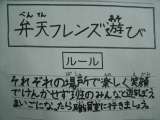 べんてん あそ
弁天フレンズ遊び
ルール
それぞれの場所で楽しく笑顔
でけんかせず班のみんなで遊ぼう
まいごになったら職員室に行きましょう。